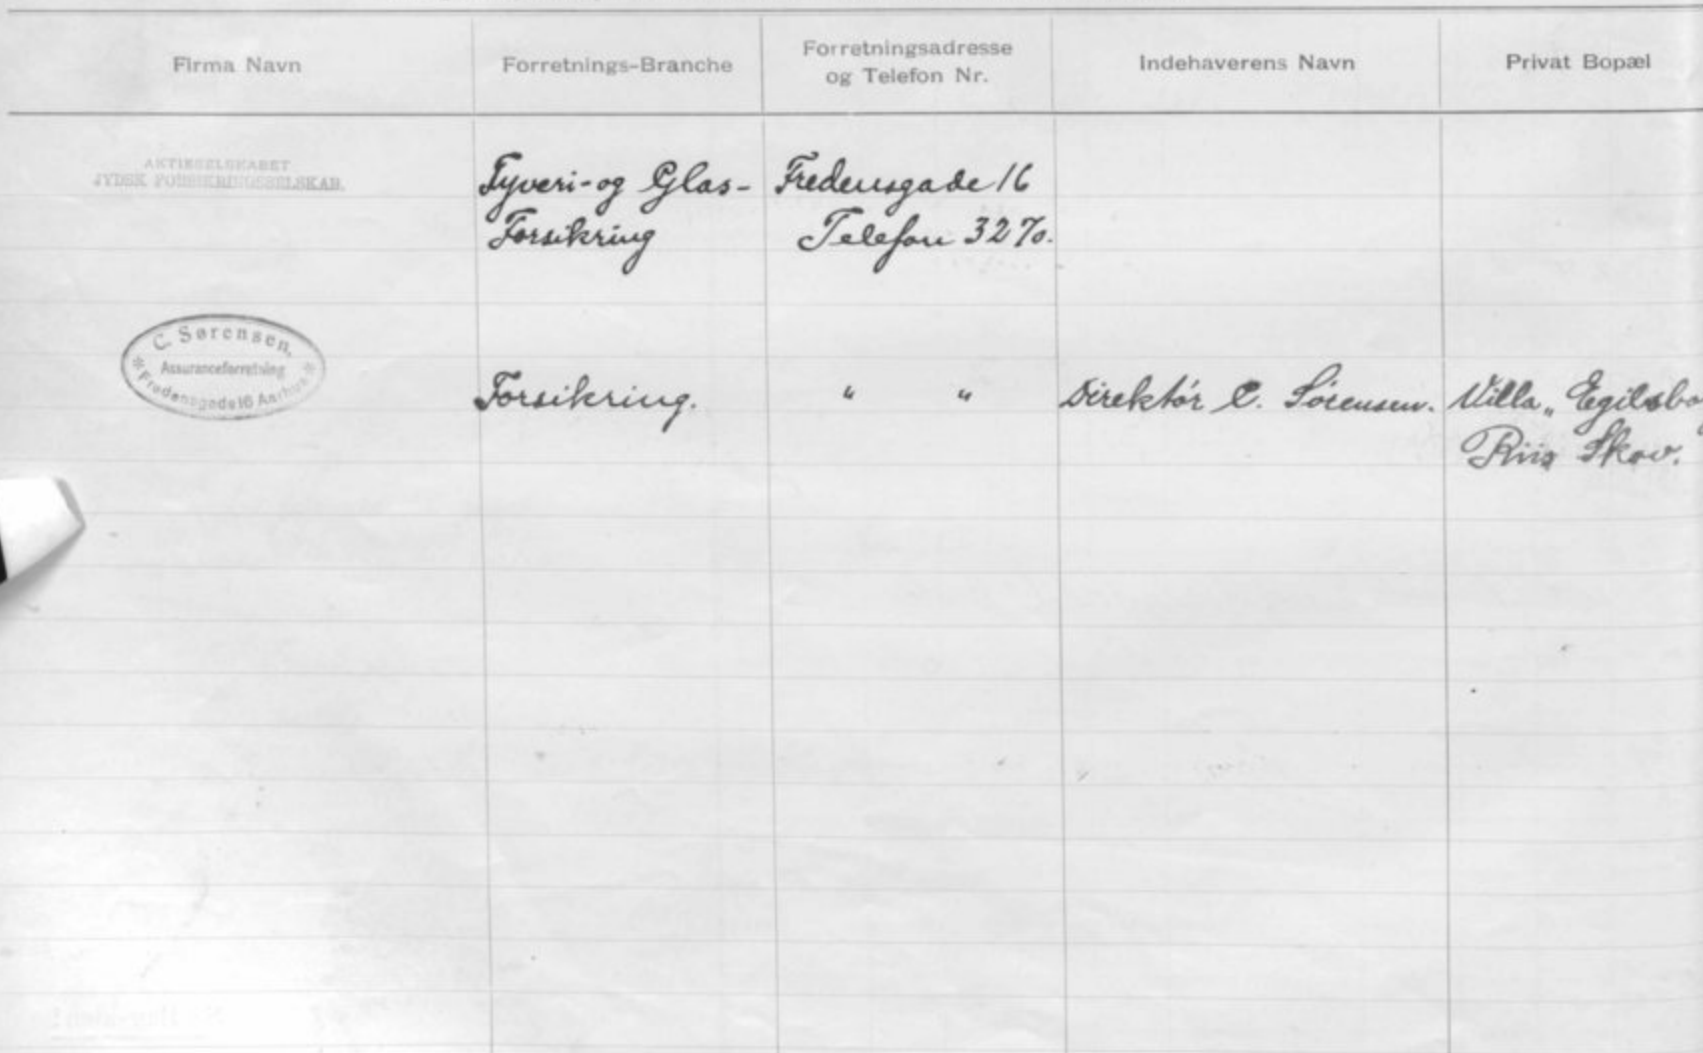 Firma Navn
Forretnings-Branche
Forretningsadresse
og Telefon Nr.
Indehaverens Navn
Privat Bopæl
AKTIESELSKABET
JYDSK FORSIKRINGSSELSKAB.
Tyveri- og Glas-
Forsikring
Fredensgade 16
Telefon 3270.
C. Sørensen,
Assuranceforretning
* Fredensgade 16 Aarhus *
Forsikring.
" "
Direktør C. Sørensen.
Villa „Egilsbo
Riis Skov.